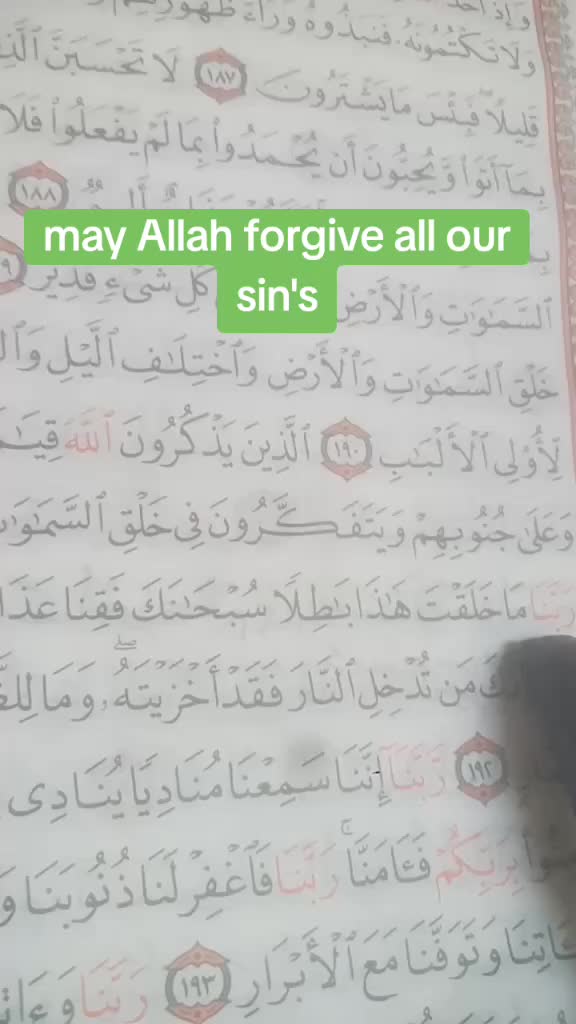 وَإِذْ أَخَذَ
وَلَا تَكْتُمُونَهُۥ فَنَبَذُوهُ وَرَآءَ ظُهُورِهِمْ
قَلِيلًا ۖ فَبِئْسَ مَا يَشْتَرُونَ ١٨٧ لَا تَحْسَبَنَّ ٱلَّذِ
بِمَآ أَتَوا۟ وَّيُحِبُّونَ أَن يُحْمَدُوا۟ بِمَا لَمْ يَفْعَلُوا۟ فَلَا
١٨٨
may Allah forgive all our
sin's
ٱلسَّمَـٰوَٰتِ وَٱلْأَرْضِ كُلِّ شَىْءٍ قَدِيرٌ
خَلْقِ ٱلسَّمَـٰوَٰتِ وَٱلْأَرْضِ وَٱخْتِلَـٰفِ ٱلَّيْلِ وَٱل
لِّأُو۟لِى ٱلْأَلْبَـٰبِ ١٩٠ ٱلَّذِينَ يَذْكُرُونَ ٱللَّهَ قِيَـٰمً
وَعَلَىٰ جُنُوبِهِمْ وَيَتَفَكَّرُونَ فِى خَلْقِ ٱلسَّمَـٰوَٰ
رَبَّنَا مَا خَلَقْتَ هَـٰذَا بَـٰطِلًا سُبْحَـٰنَكَ فَقِنَا عَذَا
مَن تُدْخِلِ ٱلنَّارَ فَقَدْ أَخْزَيْتَهُۥ ۖ وَمَا لِلظَّ
١٩٢ رَّبَّنَآ إِنَّنَا سَمِعْنَا مُنَادِيًا يُنَادِى
بِرَبِّكُمْ فَـَٔامَنَّا ۚ رَبَّنَا فَٱغْفِرْ لَنَا ذُنُوبَنَا وَ
اتِنَا وَتَوَفَّنَا مَعَ ٱلْأَبْرَارِ ١٩٣ رَبَّنَا وَءَاتِ